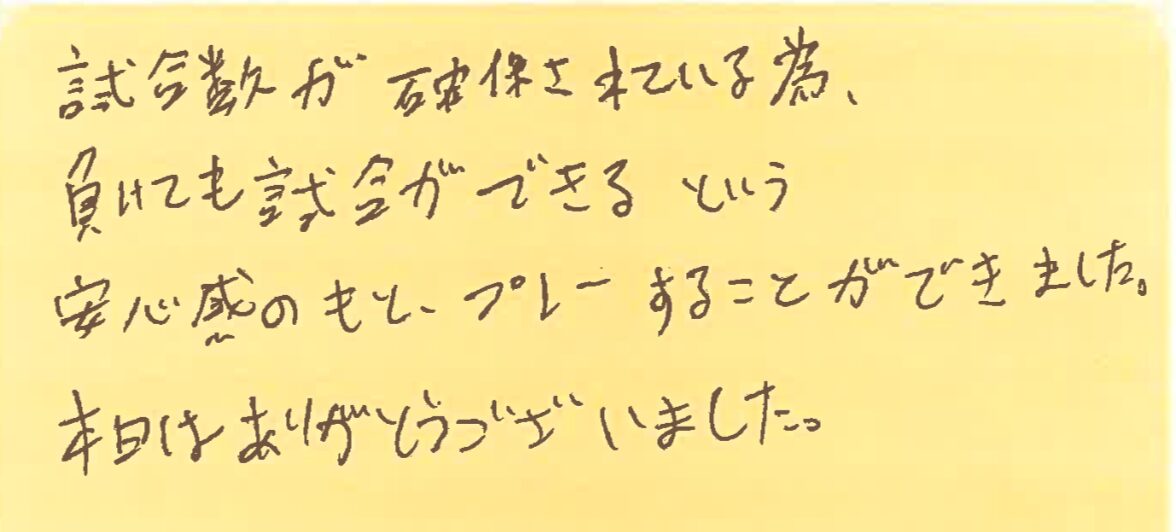 試合数が確保されている為、
負けても試合ができるという
安心感のもと、プレーすることができました。
本日はありがとうございました。